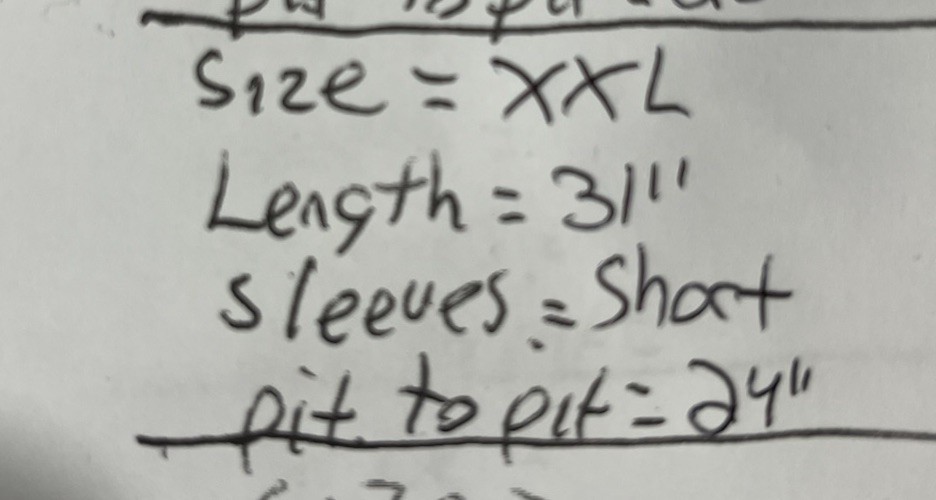 Size = XXL
Length = 31"
Sleeves = Short
pit to pit = 24"